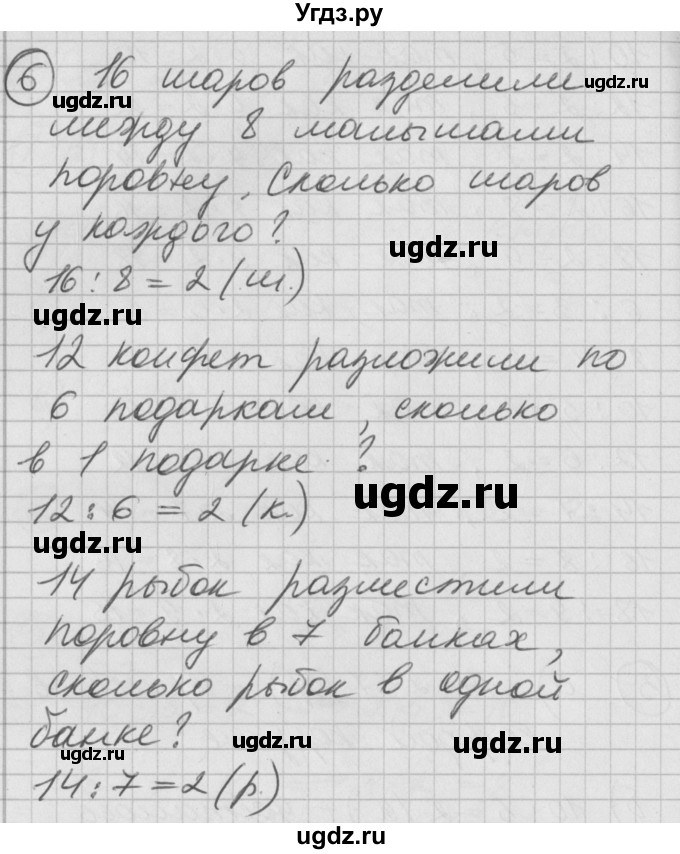 Угдз.ру
6 16 шаров разделили
между 8 малышами
поровну. Сколько шаров
у каждого?
16 : 8 = 2 (ш.)
12 конфет разложили по
6 подаркам, сколько
в 1 подарке ?
12 : 6 = 2 (к.)
14 рыбок разместили
поровну в 7 банках,
сколько рыбок в одной
банке?
14 : 7 = 2 (р.)
ugdz.ru
ugdz.ru
ugdz.ru
ugdz.ru
ugdz.ru
ugdz.ru
ugdz.ru
ugdz.ru
ugdz.ru
ugdz.ru
ugdz.ru